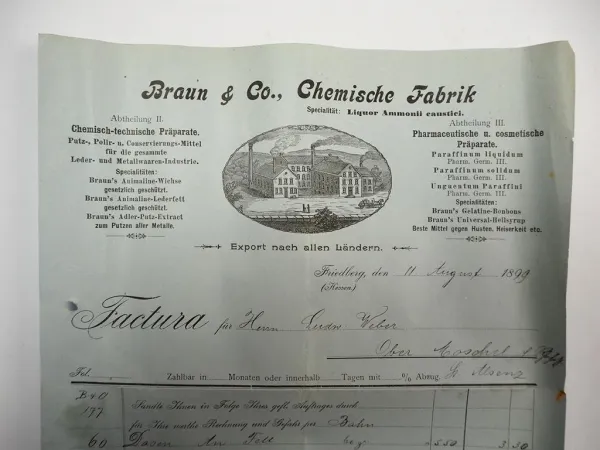 Braun & Co., Chemische Fabrik
Specialität: Liquor Ammonii caustici.
Abtheilung II.
Chemisch-technische Präparate.
Putz-, Polir- u. Conservierungs-Mittel
für die gesammte
Leder- und Metallwaaren-Industrie.
Specialitäten:
Braun's Animaline-Wichse
gesetzlich geschützt.
Braun's Animaline-Lederfett
gesetzlich geschützt.
Braun's Adler-Putz-Extract
zum Putzen aller Metalle.
Abtheilung III.
Pharmaceutische u. cosmetische
Präparate.
Paraffinum liquidum
Pharm. Germ. III.
Paraffinum solidum
Pharm. Germ. III.
Unguentum Paraffini
Pharm. Germ. III.
Specialitäten:
Braun's Gelatine-Bonbons
Braun's Universal-Heilsyrup
Beste Mittel gegen Husten, Heiserkeit etc.
Export nach allen Ländern.
Friedberg, den 11 August 1899
(Hessen)
Factura für Herrn Ludw Weber
Ober Moschel
Fol. Zahlbar in Monaten oder innerhalb Tagen mit % Abzug.
B 40
177 Sandte Ihnen in Folge Ihres gefl. Auftrages durch
für Ihre werthe Rechnung und Gefahr per Bahn
60 Dosen